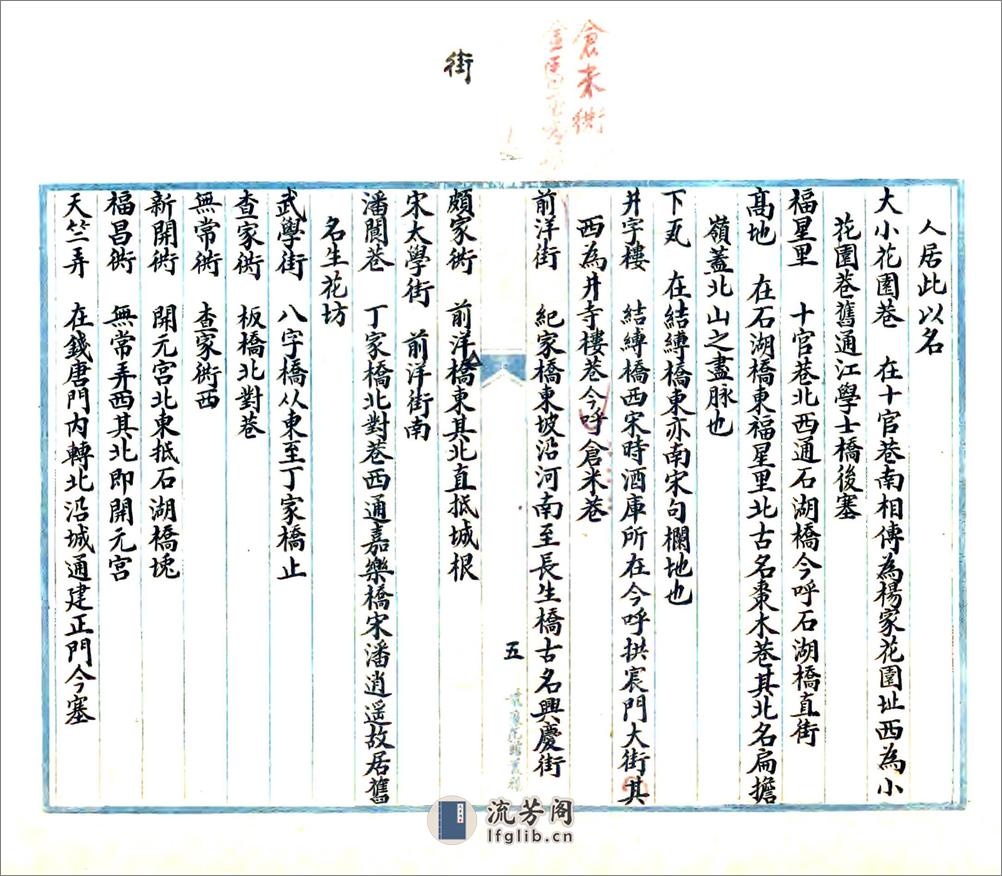 倉米衖
街
人居此以名
大小花園巷　在十官巷南相傳為楊家花園址西為小
花園巷舊通江學士橋後塞
福星里　十官巷北西通石湖橋今呼石湖橋直街
高地　在石湖橋東福星里北古名棗木巷其北名扁擔
嶺蓋北山之盡脉也
下瓦　在結縛橋東亦南宋句欄地也
井字樓　結縛橋西宋時酒庫所在今呼拱宸門大街其
西為井寺樓巷今呼倉米巷
前洋街　紀家橋東坡沿河南至長生橋古名興慶街
五
頗家衖　前洋橋東其北直抵城根
宋大學街　前洋街南
潘閬巷　丁家橋北對巷西通嘉樂橋宋潘逍遥故居舊
名生花坊
武學街　八字橋从東至丁家橋止
查家衖　板橋北對巷
無常衖　查家衖西
新開衖　開元宮北東抵石湖橋堍
福昌衖　無常弄西其北即開元宮
天竺弄　在錢唐門內轉北沿城通建正門今塞
流芳阁
lfglib.cn